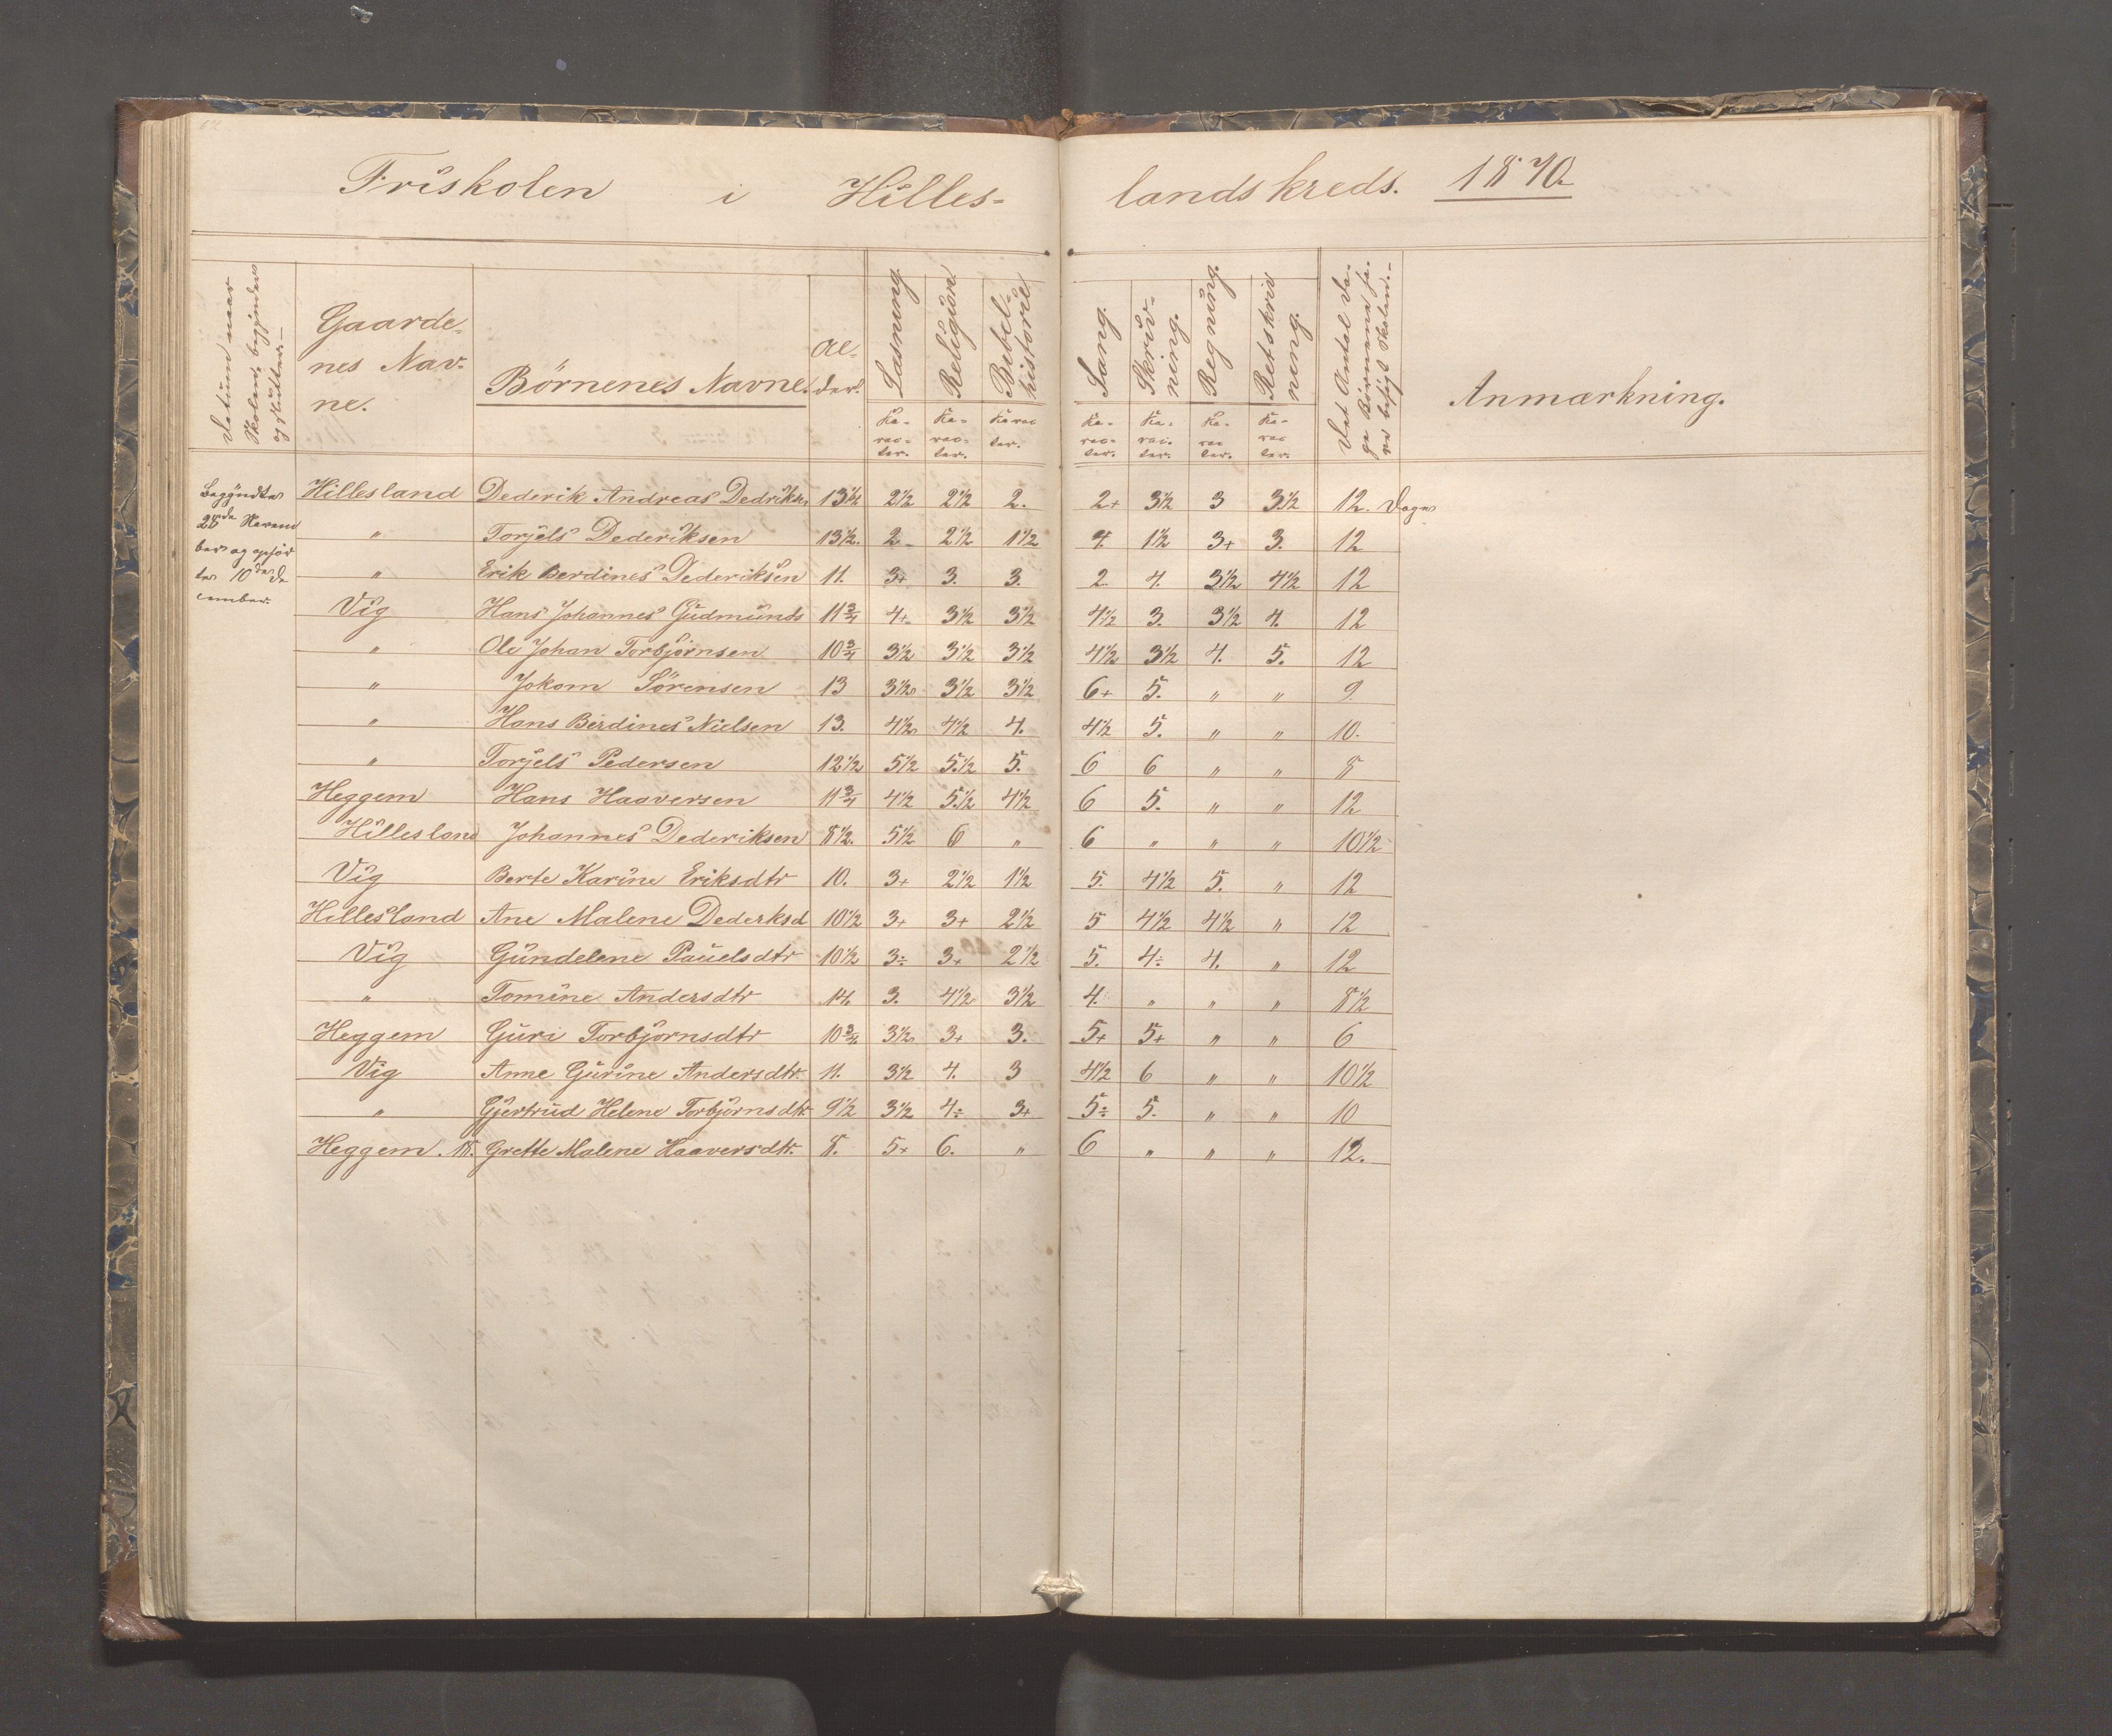 Friskolen i Hilles- landskreds. 1870.
Datum naar Skolen begynder og slutter.-
Gaarde-
nes Nav-
ne.
Börnenes Navne.
Al-
der.
Læsning.
Religiøn
Bibel-
historie
Sang.
Skriv-
ning.
Regning.
Retskriv
ning.
Det Antal Da-
ge Börnene ha-
ve besøgt Skolen.-
Anmærkning.
Ka- rac- ter. Ka- rac- ter. Karac ter. Ka- rac- ter. Ka- rac- ter. Ka- rac ter. Ka- rac ter.
Begyndte
28de Novem
ber og ophør
te 10de De
cember.
Hillesland Dederik Andreas Dedriksen 13 1/4 2 1/2 2 1/2 2. 2+ 3 1/2 3 3 1/2 12. Dage
" Torjels Dederiksen 13 1/2. 2- 2 1/2 1 1/2 4. 1 1/2 3+ 3. 12
" Erik Berdines Dederiksen 11. 3+ 3. 3. 2 4. 3 1/2 4 1/2 12
Vig Hans Johannes Gudmunds 11 3/4 4+ 3 1/2 3 1/2 4 1/2 3. 3 1/2 4. 12
" Ole Johan Torbjörnsen 10 3/4 3 1/2 3 1/2 3 1/2 4 1/2 3 1/2 4. 5. 12
" Jokom Sörensen 13 3 1/2 3 1/2 3 1/2 6+ 5. " " 9
" Hans Berdines Nielsen 13. 4 1/2 4 1/2 4. 4 1/2 5. " " 10.
" Torjels Pedersen 12 1/2 5 1/2 5 1/2 5. 6 6 " " 8
Heggem Hans Haaversen 11 3/4 4 1/2 5 1/2 4 1/2 6 5. " " 12
Hillesland Johannes Dederiksen 8 1/2. 5 1/2 6 " 6 " " " 10 1/2
Vig Berte Karine Eriksdtr 10. 3+ 2 1/2 1 1/2 5. 4 1/2 5. " 12
Hillesland Ane Malene Dederksd 10 1/2 3+ 3+ 2 1/2 5 4 1/2 4 1/2 " 12
Vig Gundelene Pauelsdtr 10 1/2 3÷ 3+ 2 1/2 5. 4÷ 4. " 12
" Tomine Andersdtr 14. 3. 4 1/2 3 1/2 4. " " " 8 1/2
Heggem Guri Torbjornsdtr 10 3/4 3 1/2 3+ 3. 5+ 5+ " " 6
Vig Anne Gurine Andersdtr. 11. 3 1/2 4. 3 4 1/2 6 " " 10 1/2
" Gjertrud Helene Torbjornsdtr 9 1/2 3 1/2 4÷ 3+ 5÷ 5. " " 10
Heggem. 18. Grette Malene Haaversdtr. 8. 5+ 6. " 6 " " " 12.